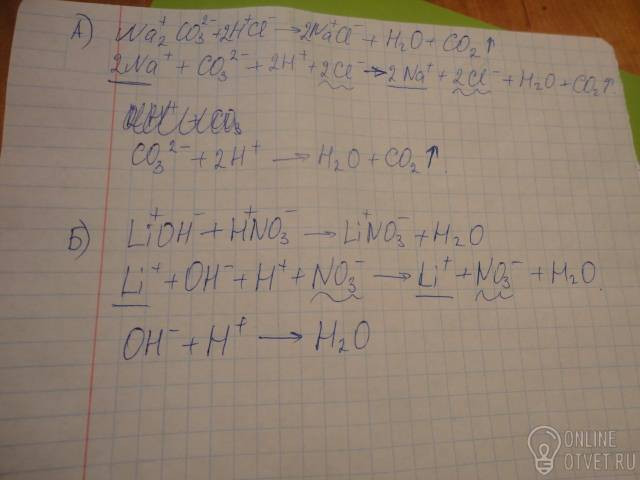 А) Na₂⁺CO₃²⁻+2H⁺Cl⁻→2Na⁺Cl⁻+H₂O+CO₂↑
2Na⁺+CO₃²⁻+2H⁺+2Cl⁻→2Na⁺+2Cl⁻+H₂O+CO₂↑
CO₃²⁻+2H⁺→H₂O+CO₂↑.
Б) Li⁺OH⁻+H⁺NO₃⁻→Li⁺NO₃⁻+H₂O
Li⁺+OH⁻+H⁺+NO₃⁻→Li⁺+NO₃⁻+H₂O.
OH⁻+H⁺→H₂O
ONLINE
OTVET.RU